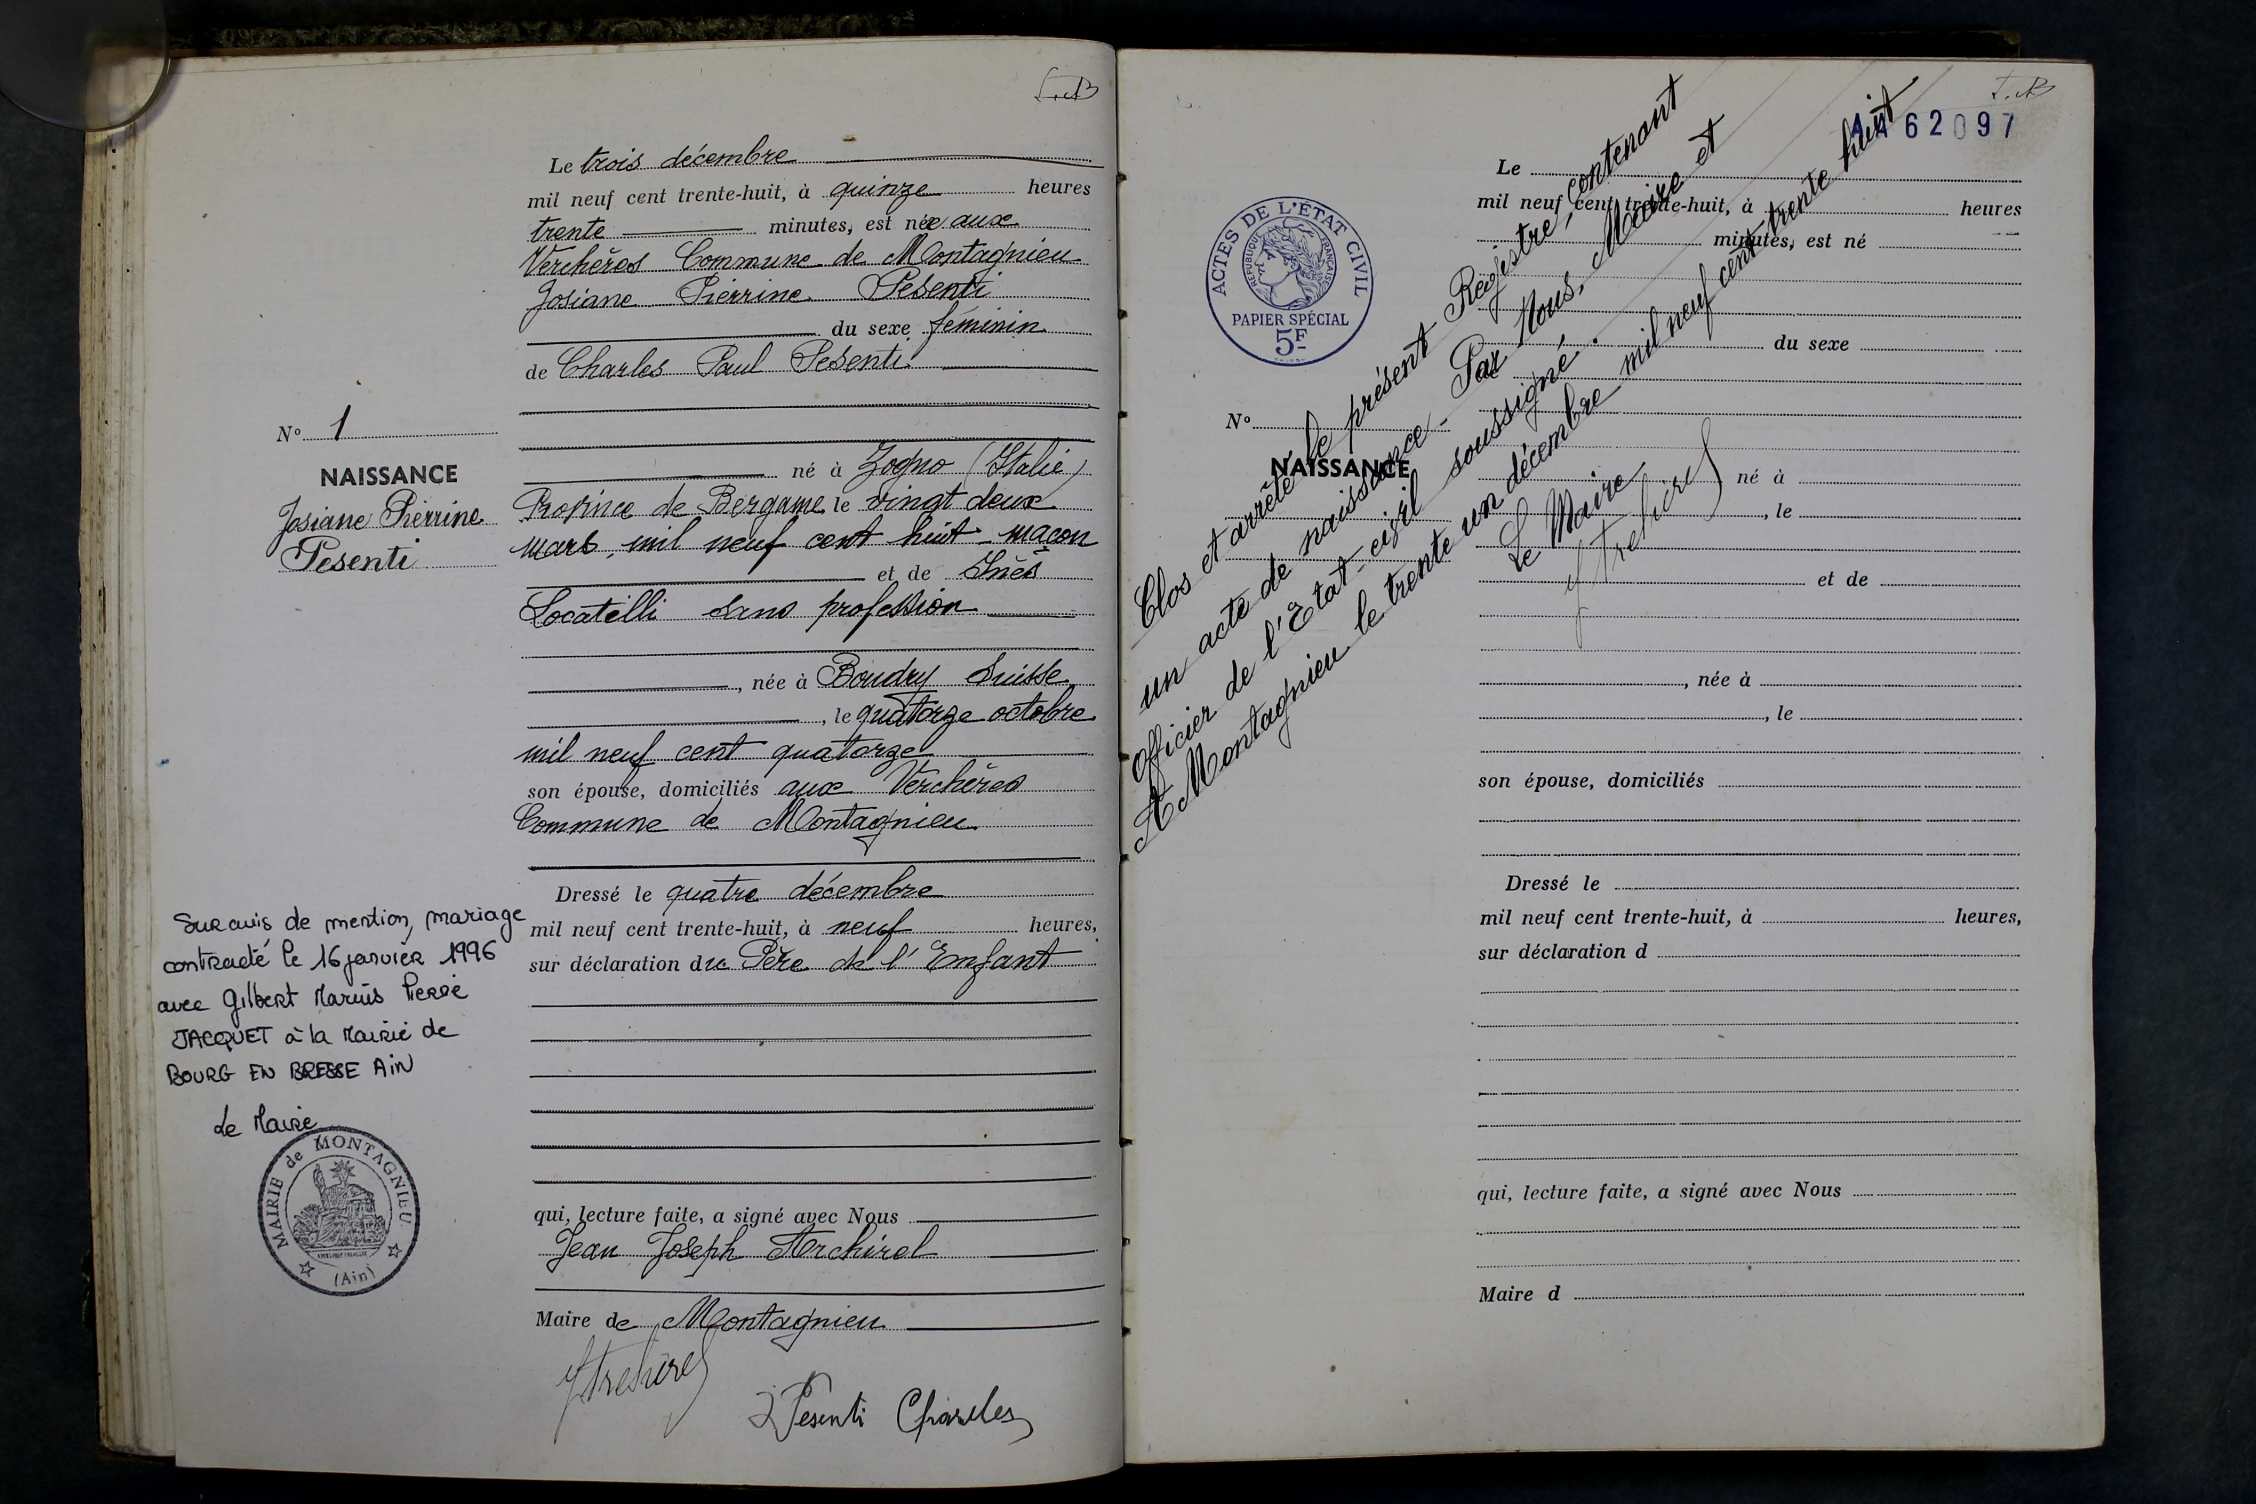 Le trois décembre
mil neuf cent trente-huit, à quinze heures
trente minutes, est née aux
Verchères Commune de Montagnieu
Josiane Pierrine Pesenti
du sexe féminin
de Charles Paul Pesenti
né à Zogno (Italie)
Province de Bergame, le vingt deux
mars, mil neuf cent huit - maçon
et de Inès
Locatelli sans profession
, née à Boudry Suisse
, le quatorze octobre
mil neuf cent quatorze
son épouse, domiciliés aux Verchères
Commune de Montagnieu
Dressé le quatre décembre
mil neuf cent trente-huit, à neuf heures,
sur déclaration du Père de l'Enfant
qui, lecture faite, a signé avec Nous
Jean Joseph Archirel
Maire de Montagnieu
Pesenti Charles
N° 1
NAISSANCE
Josiane Pierrine
Pesenti
Sur avis de mention, mariage
contracté le 16 janvier 1996
avec Gilbert Marius Pierre
JACQUET à la Mairie de
BOURG EN BRESSE AiN
Le Maire
MAIRIE de MONTAGNIEU
(Ain)
62097
ACTES DE L'ÉTAT CIVIL
RÉPUBLIQUE FRANÇAISE
PAPIER SPÉCIAL
5F
Clos et arrêté le présent Registre, contenant
un acte de naissance - Par Nous, Maire et
officier de l'Etat-civil soussigné.
A Montagnieu le trente un décembre mil neuf cent trente huit
Le Maire
Le
mil neuf cent trente-huit, à heures
minutes, est né
du sexe
de
N°
NAISSANCE
né à
, le
et de
, née à
, le
son épouse, domiciliés
Dressé le
mil neuf cent trente-huit, à heures,
sur déclaration d
qui, lecture faite, a signé avec Nous
Maire d